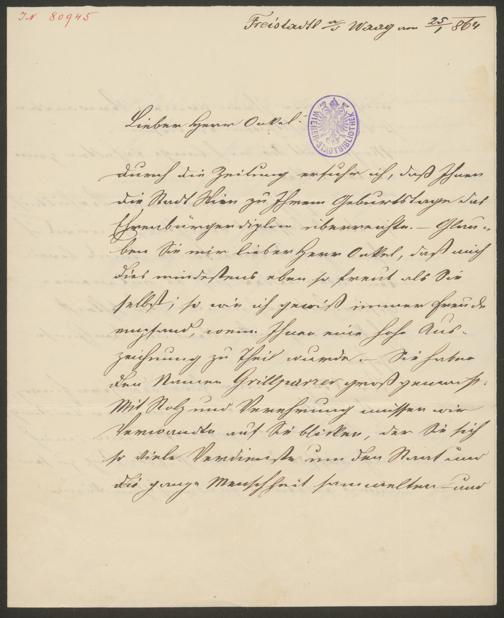 IN 80945
Freistadtl a/d Waag am 25/1 864
WIENER STADTBIBLIOTHEK
Lieber Herr Onkel!
Durch die Zeitung erfuhr ich, daß Ihnen
die Stadt Wien zu Ihrem Geburtstage das
Ehrenbürgerdiplom überreichte. – Glau-
ben Sie mir lieber Herr Onkel, daß mich
dies mindestens eben so freut als Sie
selbst; so wie ich gewiß immer Freude
empfand, wenn Ihnen eine hohe Aus-
zeichnung zu Theil wurde. – Sie haben
den Namen Grillparzer groß gemacht.
Mit Stolz und Verehrung müssen wir
Verwandte auf Sie blicken, der Sie sich
so viele Verdienste um den Staat und
die ganze Menschheit sammelten – und